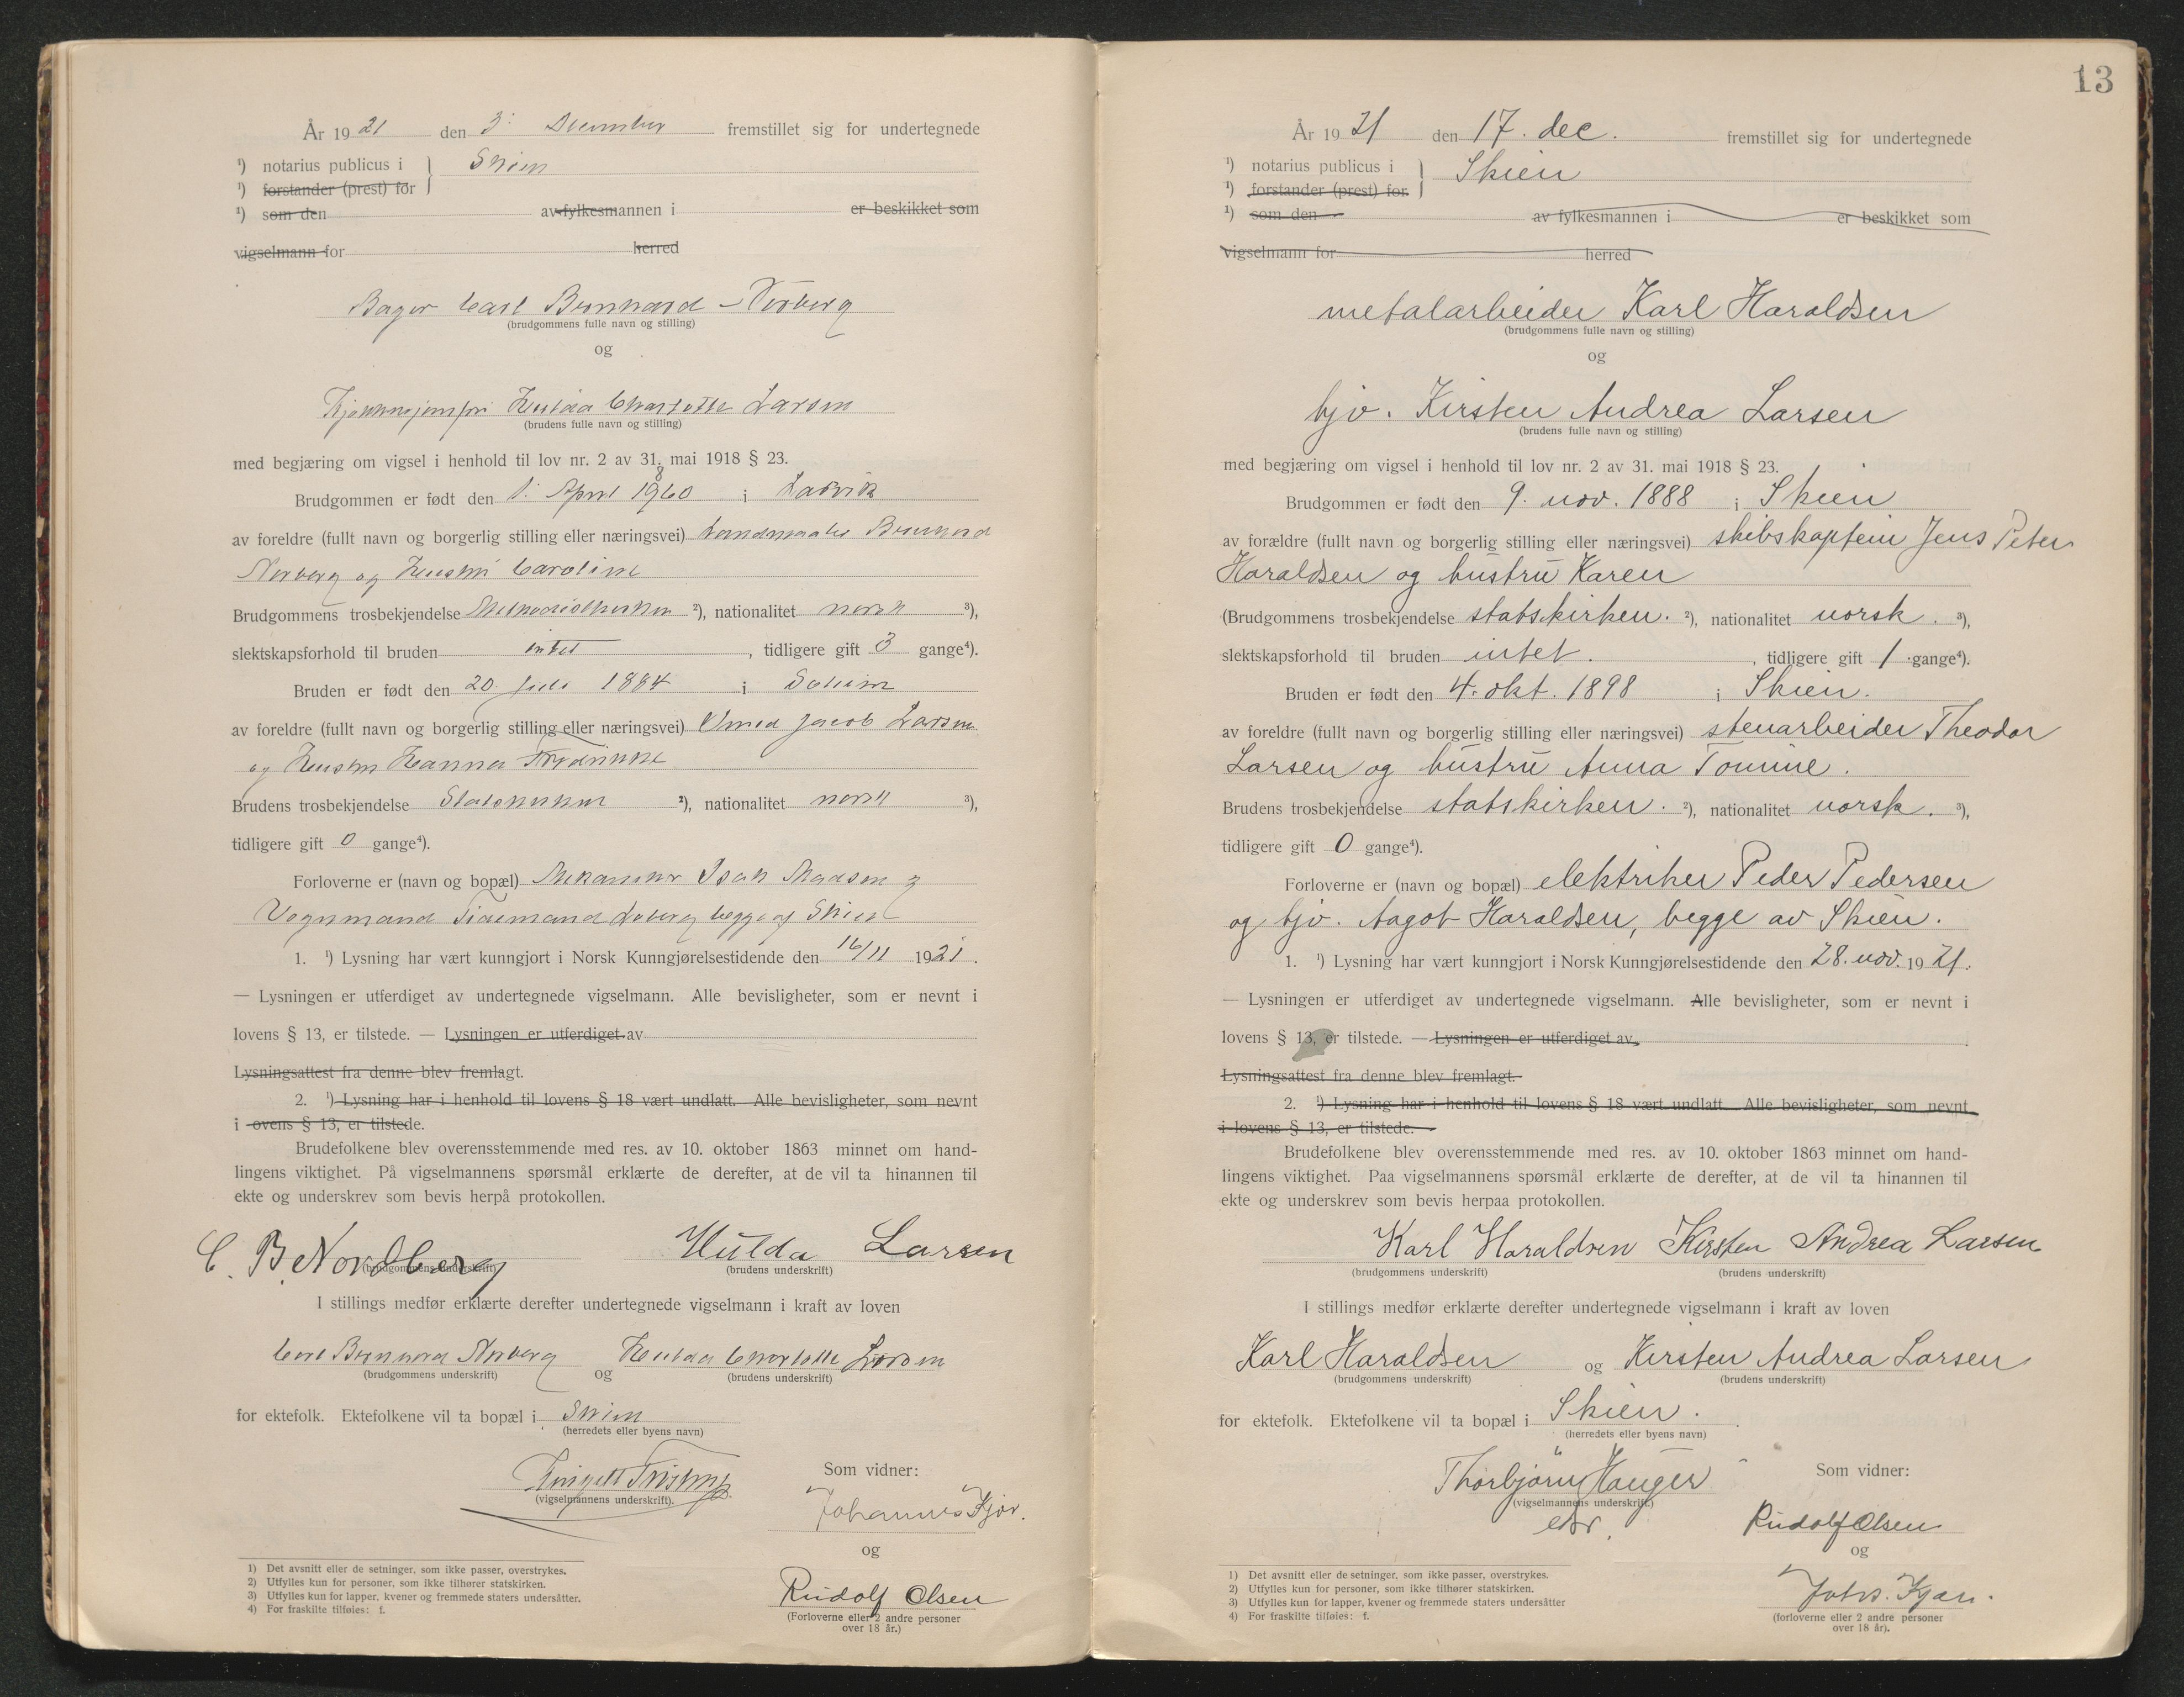 År 1921 den 3' December fremstillet sig for undertegnede
¹) notarius publicus i } Skien
¹) forstander (prest) for
¹) som den av fylkesmannen i er beskikket som
vigselmann for herred
Bager Carl Bernhard Norberg
(brudgommens fulle navn og stilling)
og
Hulda Charlotte Larsen
(brudens fulle navn og stilling)
med begjæring om vigsel i henhold til lov nr. 2 av 31. mai 1918 § 23.
Brudgommen er født den 1. April 1860 i Larvik
av foreldre (fullt navn og borgerlig stilling eller næringsvei) Bernhard
Norberg og Hustru Caroline
Brudgommens trosbekjendelse Methodistkirken ²), nationalitet norsk ³),
slektskapsforhold til bruden intet, tidligere gift 3 gange⁴).
Bruden er født den 20. juli 1884 i Solum
av foreldre (fullt navn og borgerlig stilling eller næringsvei) Jacob Larsen
og Hustru Hanna
Brudens trosbekjendelse Statskirken ²), nationalitet norsk ³),
tidligere gift 0 gange⁴).
Forloverne er (navn og bopæl) Mekaniker Isak Madsen og
Vognmand Tidemand begge af Skien
1. ¹) Lysning har vært kunngjort i Norsk Kunngjørelsestidende den 16/11 1921.
— Lysningen er utferdiget av undertegnede vigselmann. Alle bevisligheter, som er nevnt i
lovens § 13, er tilstede. — Lysningen er utferdiget av
Lysningsattest fra denne blev fremlagt.
2. ¹) Lysning har i henhold til lovens § 18 vært undlatt. Alle bevisligheter, som nevnt
i ovens § 13, er tilstede.
Brudefolkene blev overensstemmende med res. av 10. oktober 1863 minnet om hand-
lingens viktighet. På vigselmannens spørsmål erklærte de derefter, at de vil ta hinannen til
ekte og underskrev som bevis herpå protokollen.
C. B. Nordberg Hulda Larsen
(brudgommens underskrift) (brudens underskrift)
I stillings medfør erklærte derefter undertegnede vigselmann i kraft av loven
Carl Bernhard Norberg og Hulda Charlotte Larsen
(brudgommens underskrift) (brudens underskrift)
for ektefolk. Ektefolkene vil ta bopæl i Skien
(herredets eller byens navn)
Som vidner:
(vigselmannens underskrift).
Johannes Kjær.
og
Rudolf Olsen
(Forloverne eller 2 andre personer
over 18 år.)
1) Det avsnitt eller de setninger, som ikke passer, overstrykes.
2) Utfylles kun for personer, som ikke tilhører statskirken.
3) Utfylles kun for lapper, kvener og fremmede staters undersåtter.
4) For fraskilte tilføies: f.
13
År 1921 den 17. dec. fremstillet sig for undertegnede
¹) notarius publicus i } Skien
¹) forstander (prest) for
¹) som den av fylkesmannen i er beskikket som
vigselmann for herred
metalarbeider Karl Haraldsen
(brudgommens fulle navn og stilling)
og
hjv. Kirsten Andrea Larsen
(brudens fulle navn og stilling)
med begjæring om vigsel i henhold til lov nr. 2 av 31. mai 1918 § 23.
Brudgommen er født den 9. nov. 1888 i Skien
av forældre (fullt navn og borgerlig stilling eller næringsvei) skibskaptein Jens Peter
Haraldsen og hustru Karen
(Brudgommens trosbekjendelse statskirken. ²), nationalitet norsk. ³),
slektskapsforhold til bruden intet., tidligere gift 1 gange⁴).
Bruden er født den 4. okt. 1898 i Skien.
av foreldre (fullt navn og borgerlig stilling eller næringsvei) stenarbeider Theodor
Larsen og hustru Anna Tomine.
Brudens trosbekjendelse statskirken. ²), nationalitet norsk. ³),
tidligere gift 0 gange⁴).
Forloverne er (navn og bopæl) elektriker Peder Pedersen
og hjv. Aagot Haraldsen, begge av Skien.
1. ¹) Lysning har vært kunngjort i Norsk Kunngjørelsestidende den 28. nov. 1921.
— Lysningen er utferdiget av undertegnede vigselmann. Alle bevisligheter, som er nevnt i
lovens § 13, er tilstede. — Lysningen er utferdiget av
Lysningsattest fra denne blev fremlagt.
2. ¹) Lysning har i henhold til lovens § 18 vært undlatt Alle bevisligheter, som nevnt
i lovens § 13, er tilstede.
Brudefolkene blev overensstemmende med res. av 10. oktober 1863 minnet om hand-
lingens viktighet. Paa vigselmannens spørsmål erklærte de derefter, at de vil ta hinannen til
ekte og underskrev som bevis herpaa protokollen.
Karl Haraldsen Kirsten Andrea Larsen
(brudgommens underskrift) (brudens underskrift)
I stillings medfør erklærte derefter undertegnede vigselmann i kraft av loven
Karl Haraldsen og Kirsten Andrea Larsen
(brudgommens underskrift) (brudens underskrift)
for ektefolk. Ektefolkene vil ta bopæl i Skien.
(herredets eller byens navn)
Thorbjörn Hauger
Som vidner:
(vigselmannens underskrift.)
Rudolf Olsen
og
Johs. Kjær.
(forloverne eller 2 andre personer
over 18 år).
1) Det avsnitt eller de setninger, som ikke passer, overstrykes.
2) Utfylles kun for personer, som ikke tilhører statskirken.
3) Utfylles kun for lapper, kvener og fremmede staters undersåtter
4) For fraskilte tilføies: f.